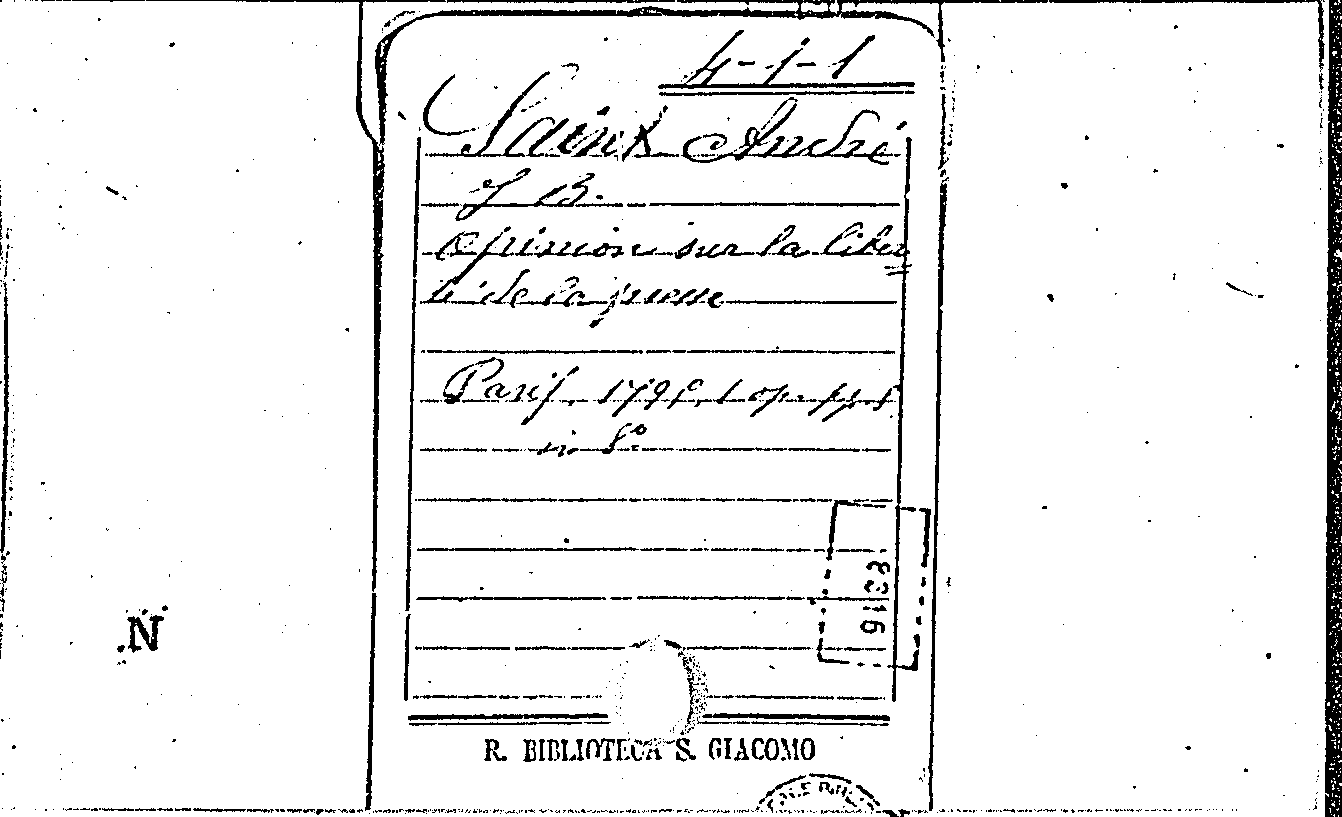 4-1-1
Saint André
J. B.
Opinion sur la liber
té de la presse
Paris,
in 8°
8316
N
R. BIBLIOTECA S. GIACOMO